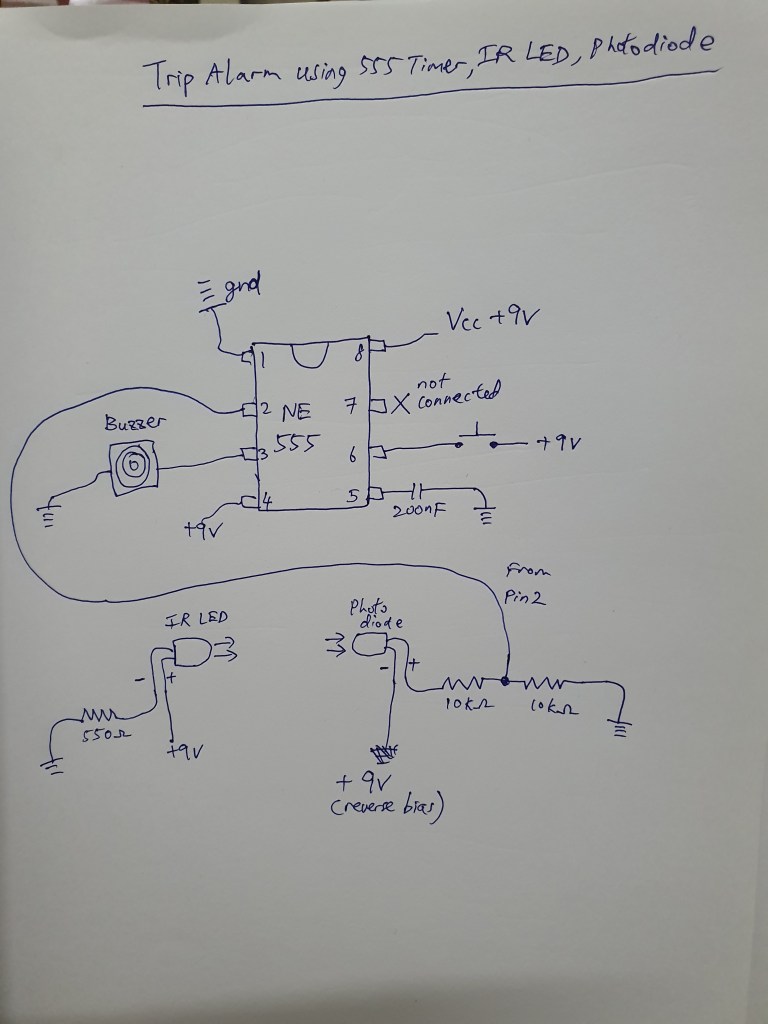 Trip Alarm using 555 Timer, IR LED, Photodiode
gnd
Vcc +9V
1
8
2
NE
7
not
connected
Buzzer
3
555
6
+9V
+9V
4
5
200nF
From
Pin2
IR LED
Photo
diode
-
+
-
+
550Ω
+9V
10kΩ
10kΩ
+9V
(reverse bias)